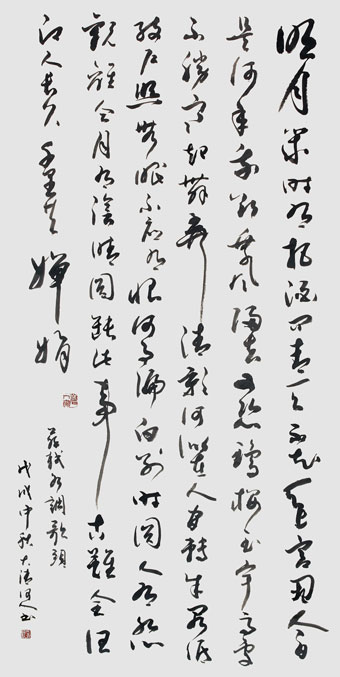 明月幾时有把酒问青天不知天上宫阙今夕
是何年我欲乘风归去又恐瓊楼玉宇高處
不勝寒起舞弄清影何似在人间转朱阁低
绮户照无眠不应有恨何事偏向别时圆人有悲
歡離合月有陰晴圆缺此事古難全但
願人長久千里共嬋娟
蘇轼水調歌頭
戊戌中秋大清河人书